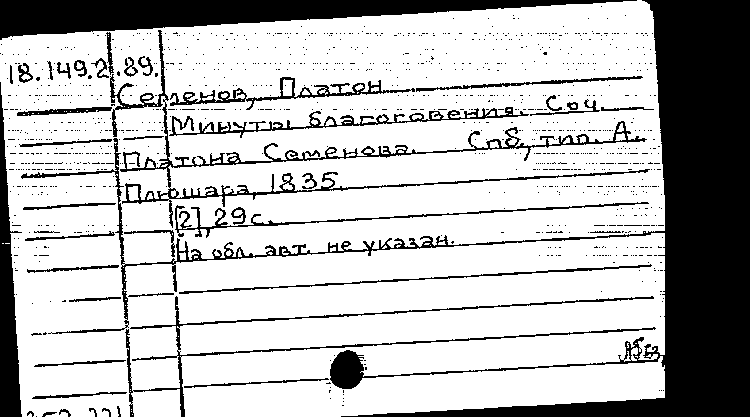 18.149.2.89.
Семенов, Платон
Минуты благоговения. Соч.
Платона Семенова. Спб., тип. А.
Плюшара, 1835.
[2], 29 с.
На обл. авт. не указан.